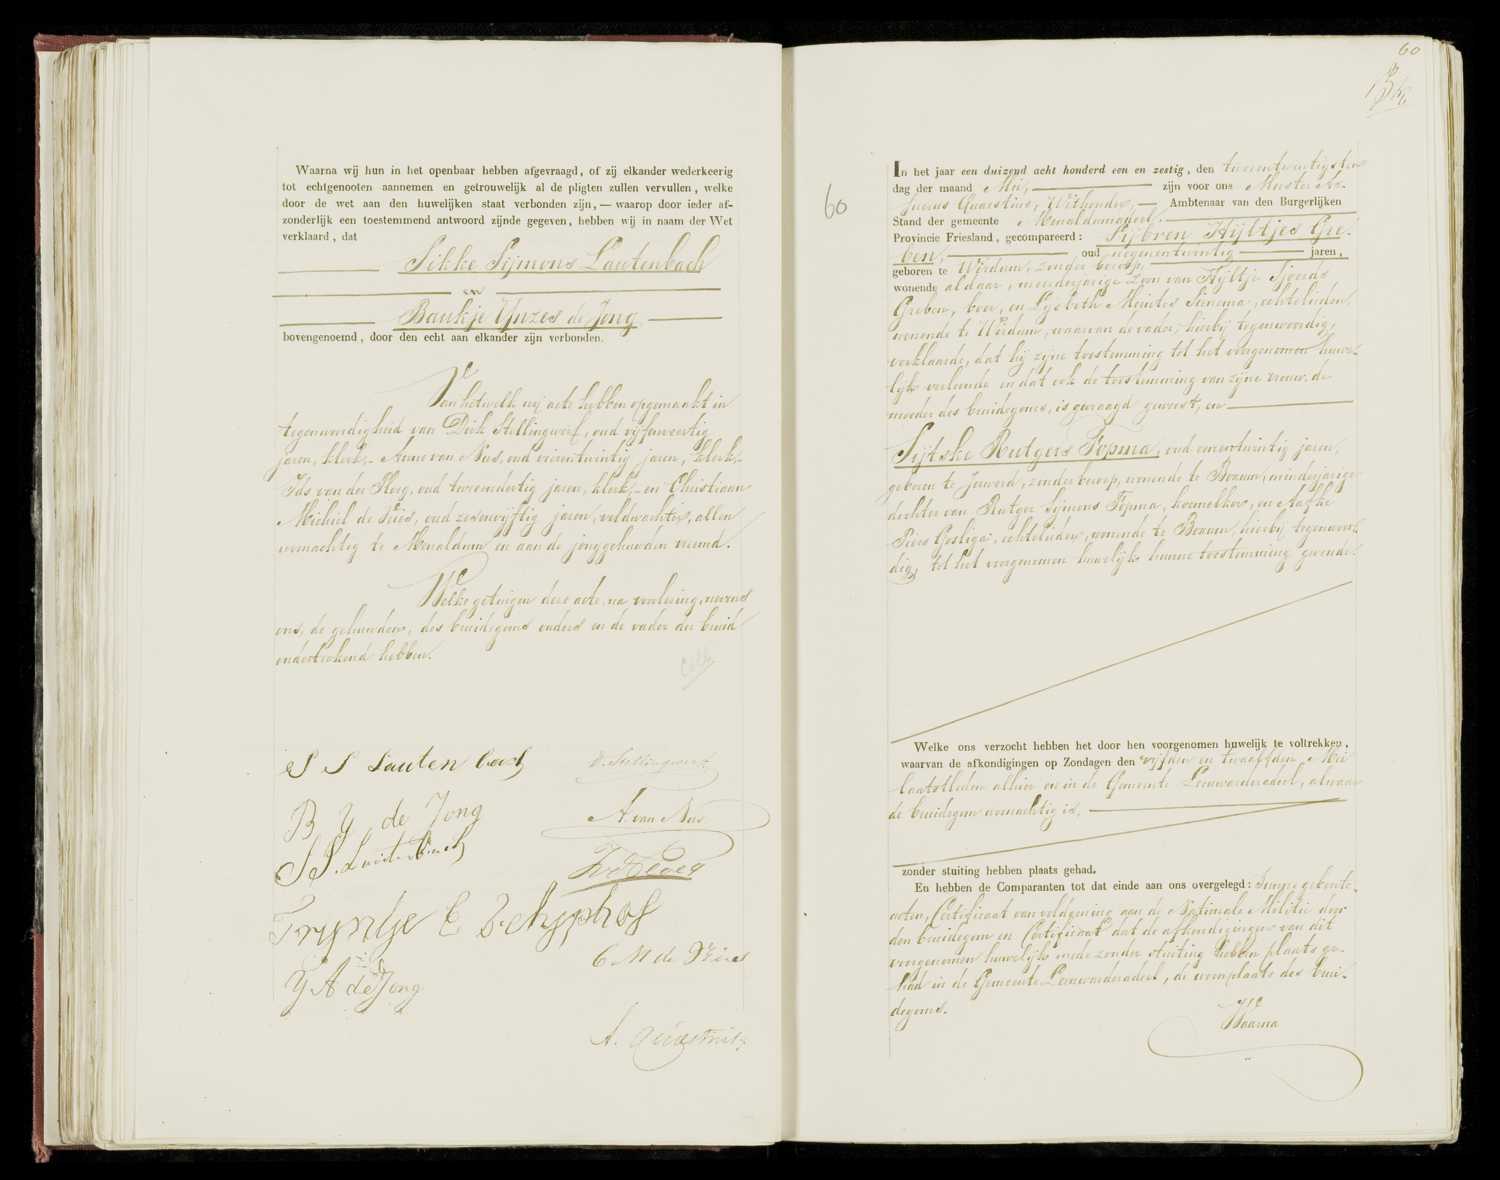 Waarna wij hun in het openbaar hebben afgevraagd, of zij elkander wederkeerig
tot echtgenooten aannemen en getrouwelijk al de pligten zullen vervullen, welke
door de wet aan den huwelijken staat verbonden zijn, — waarop door ieder af-
zonderlijk een toestemmend antwoord zijnde gegeven, hebben wij in naam der Wet
verklaard, dat
Sikke Sijmons Lautenbach
en
Baukje Ynzes de Jong
bovengenoemd, door den echt aan elkander zijn verbonden.
Van hetwelk wij acte hebben opgemaakt in
tegenwoordigheid van Dirk Stellingwerf, oud vijfenveertig
jaren, klerk,- Anne van Nes, oud vierentwintig jaren, klerk,-
Ids van der Ploeg, oud tweeendertig jaren, klerk,- en Christiaan
Michiel de Vries, oud zesenvijftig jaren, veldwachter, allen
woonachtig te Menaldum en aan de jonggehuwden vreemd.
Welke getuigen deze acte, na voorlezing, nevens
ons, de gehuwden, des bruidegoms ouders en de vader der bruid
onderteekend hebben.
S S Lautenbach
D. Stellingwerf
B Y de Jong
A. van Nes
S S. Lautenbach
Tryntje C Schyphof
C M de Vries
Y A de Jong
A. Quaestius
60
60
In het jaar een duizend acht honderd een en zestig, den tweeentwintigsten
dag der maand Mei, zijn voor ons Meester As-
suerus Quaestius, Wethouder, Ambtenaar van den Burgerlijken
Stand der gemeente Menaldumadeel.
Provincie Friesland, gecompareerd: Sijbren Hijltjes Gre-
ben, oud negenentwintig jaren,
geboren te Wirdum, zonder beroep,
wonende aldaar, meerderjarige zoon van Hijltje Sjoerds
Greben, boer, en Lijsbeth Meintes Sienema, echtelieden,
wonende te Wirdum, waarvan de vader, hierbij tegenwoordig,
verklaarde, dat hij zijne toestemming tot het voorgenomen huwe-
lijk verleende en dat ook de toestemming van zijne vrouw, de
moeder des bruidegoms, is gevraagd geweest, en
Sijtske Rutgers Fopma, oud eenentwintig jaren,
geboren te Jorwerd, zonder beroep, wonende te Boxum, minderjarige
dochter van Rutger Sijmons Fopma, koemelker, en Aafke
Piers Gosliga, echtelieden, wonende te Boxum, hierbij tegenwoor-
dig, tot het voorgenomen huwelijk hunne toestemming gevende.
Welke ons verzocht hebben het door hen voorgenomen huwelijk te voltrekken,
waarvan de afkondigingen op Zondagen den vijfden en twaalfden Mei
laatstleden alhier en in de Gemeente Leeuwarderadeel, alwaar
de bruidegom woonachtig is,
zonder stuiting hebben plaats gehad.
En hebben de Comparanten tot dat einde aan ons overgelegd: hunne geboorte-
acten, Certificaat van voldoening aan de Nationale Militie door
den bruidegom en Certificaat dat de afkondigingen van dit
voorgenomen huwelijk mede zonder stuiting hebben plaats ge-
had in de Gemeente Leeuwarderadeel, de woonplaats des brui-
degoms.
Waarna